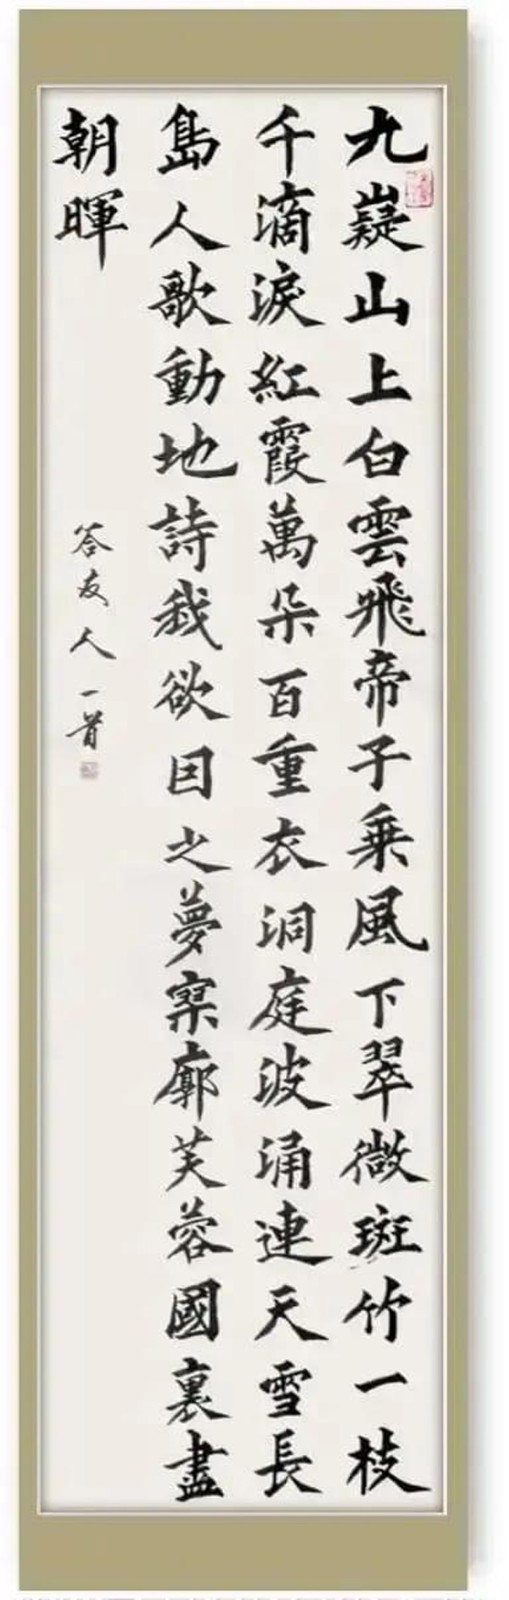 九嶷山上白雲飛帝子乘風下翠微斑竹一枝
千滴淚紅霞萬朵百重衣洞庭波涌連天雪長
島人歌動地詩我欲因之夢寥廓芙蓉國裏盡
朝暉
答友人一首